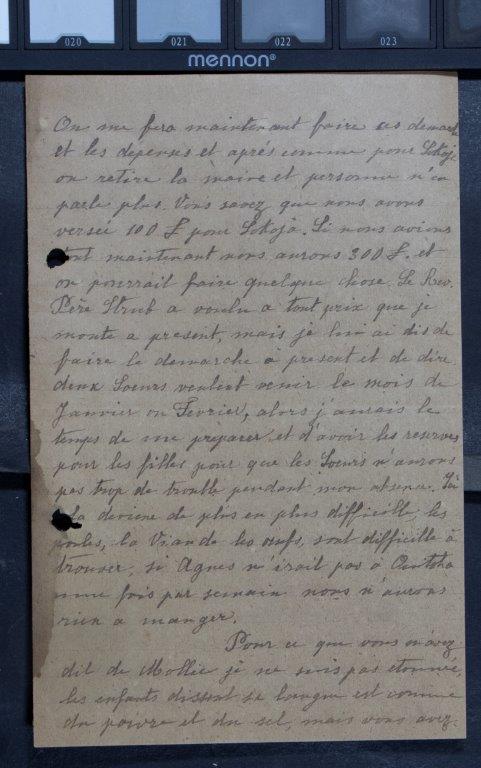 020 021 022 023
mennon®
On me fera maintenant faire ces demar
et les depenses et aprés comme pour Lokoja
on retire la maire et personne n'en
parle plus. Vous savez que nous avons
versée 100 £ pour Lokoja. Si nous avions
tout maintenant nous aurons 300 £, et
on pourrait faire quelque chose. Le Rev.
Père Strub a voulu a tout prix que je
monte a present, mais je lui ai dis de
faire le demarche a present et de dire
deux Soeurs veulent venir le mois de
Janvier ou Fevrier, alors j'aurais le
temps de me préparer et d'avoir les reserves
pour les filles pour que les Soeurs n'aurons
pas trop de trouble pendant mon absence. Ici
la deviene de plus en plus difficille les
poules, la Viande les œufs, sont difficille à
trouver, si Agnes n'irait pas à Onitsha
une fois par semain nous n'aurons
rien a manger.
Pour ce que vous m'avez
dit de Mollie je ne suis pas etonnée,
les enfants dissent se langue est comme
du poivre et du sel, mais vous avez